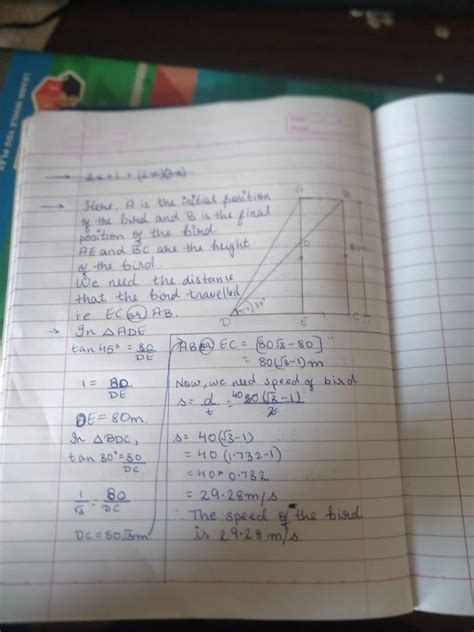 LEARN WHILE YOU PLAY
→ 2x+1+(2x)(3x)
→ Here, A is the initial position
of the bird and B is the final
position of the bird
AE and BC are the height
of the bird.
We need the distance
that the bird travelled
i.e EC (or) AB.
A
B
80m
D
30°
E
C
→ In △ADE
tan 45° = 80/DE
1 = 80/DE
DE = 80m.
In △BDC,
tan 30° = 80/DC
1/√3 = 80/DC
DC = 80√3m
AB (or) EC = [80√3 - 80]
= 80(√3-1)m
Now, we need speed of bird
s = d/t = 40 80(√3-1)/2
s = 40(√3-1)
= 40(1.732-1)
= 40×0.732
= 29.28m/s
∴ The speed of the bird
is 29.28 m/s.